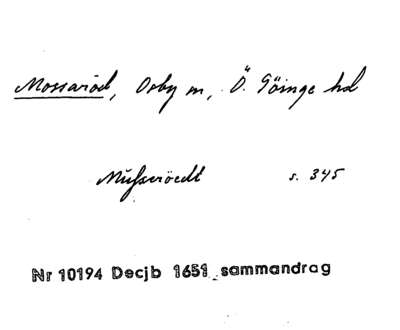 Mossaröd, Örby sn, Ö. Göinge hd
Muſseröedt s. 345
Nr 10194 Decjb 1651 sammandrag